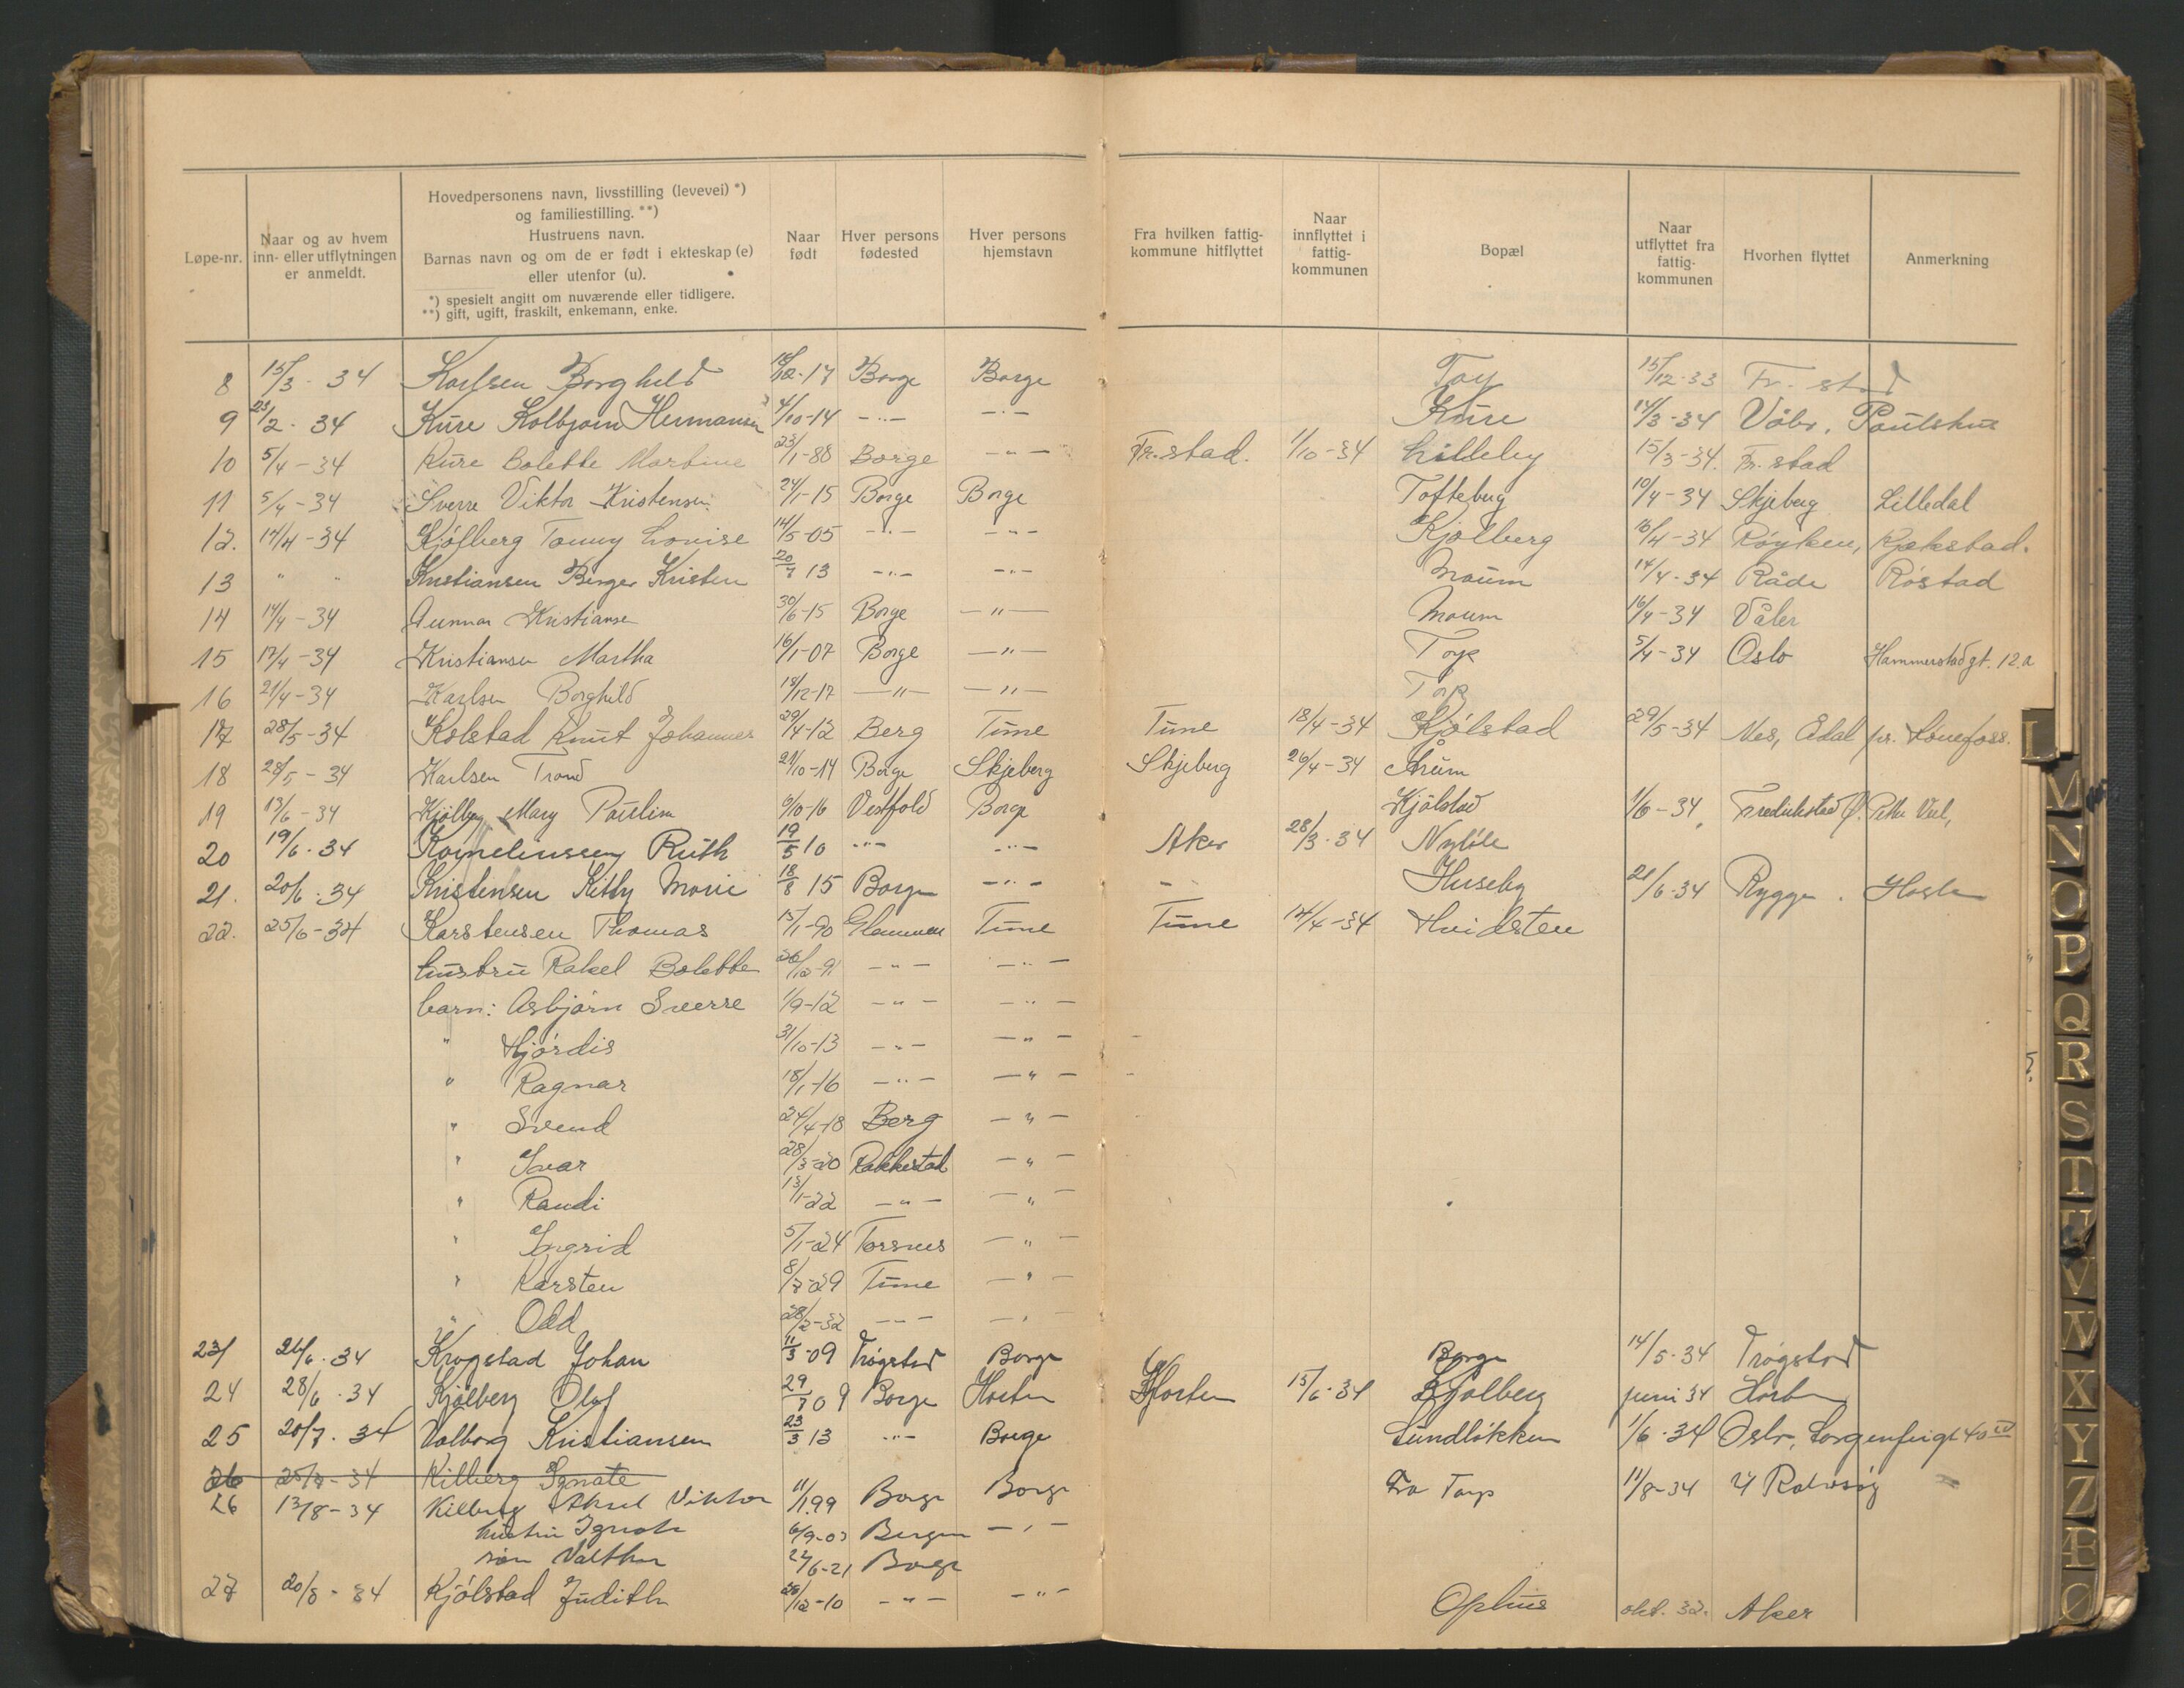 Løpe-nr.
Naar og av hvem
inn- eller utflytningen
er anmeldt.
Hovedpersonens navn, livsstilling (levevei) *)
og familiestilling. **)
Hustruens navn.
Barnas navn og om de er født i ekteskap (e)
eller utenfor (u).
*) spesielt angitt om nuværende eller tidligere.
**) gift, ugift, fraskilt, enkemann, enke.
Naar
født
Hver persons
fødested
Hver persons
hjemstavn
Fra hvilken fattig-
kommune hitflyttet
Naar
innflyttet i
fattig-
kommunen
Bopæl
Naar
utflyttet fra
fattig-
kommunen
Hvorhen flyttet
Anmerkning
8 15/3 - 34 Karlsen Borghild 18/12-17 Borge Borge 15/12-33 Fr. stad
9 23/2 - 34 Kure Kolbjørn Hermansen 4/10-14 -"- -"- Kure 14/3-34 Våler, Paulshus
10 5/4-34 Kure Bolette Martine 23/1-88 Borge -"- Fr.stad. 1/10-34 Lilleby 15/3-34. Fr. stad
11 5/4-34 Sverre Viktor Kristensen 24/1-15 Borge Borge Tofteberg 10/4-34 Skjeberg Lilledal
12. 14/4-34 Kjølberg Tonny Louise 14/5-05 -"- -"- Kjølberg 16/4-34 Røyken, Kjekstad.
13 " " Kristiansen Birger Kristen 20/7 13 -"- -"- Moum 14/4-34 Råde Røstad
14 14/4-34 Gunnar Kristiansen 30/6-15 Borge -"- Moum 16/4-34 Våler
15 17/4-34 Kristiansen Martha 16/1-07 Borge -"- Torp 5/4-34 Oslo Hammerstadgt. 12.a
16 21/4-34 Karlsen Borghild 18/12-17 -"- -"- Torp
17 28/5-34 Kolstad Knut Johannes 29/4-12 Berg Tune Tune 18/4-34 Kjølstad 29/5-34 Nes, Ådal pr. Hønefoss.
18 28/5-34 Karlsen Trond 21/10-14 Borge Skjeberg Skjeberg 26/4-34 Årum
19 13/6-34 Kjølberg Mary Pauline 6/10-16 Vestfold Borge Kjølstad 1/6-34 Fredrikstad
20 19/6-34 Korneliussen Ruth 19/5 10 -"- -"- Aker 28/3-34 Nyløle
21. 20/6-34 Kristensen Kitty Marie 18/8 15 Borge -"- - Huseby 21/6-34 Rygge.
22. 25/6-34 Karstensen Thomas 15/1-90 Glemmen Tune Tune 14/4-34 Hvidsten
hustru Rakel Bolette 26/12-91 -"- -"-
barn: Asbjørn Sverre 1/9-12 -"- -"-
" Hjørdis 31/10-13 -"- -"-
" Ragnar 18/1-16 -"- -"-
" Svend 24/4-18 Berg -"-
" Ivar 28/3-20 Rakkestad -"-
" Randi 13/1-22 -"- -"-
" Ingrid 5/1-24 Torsnes -"-
" Karsten 8/7-29 Tune -"-
" Odd 28/2-32 -"- -"-
23 26/6-34 Krogstad Johan 11/3-09 Trøgstad Borge Borge 14/5-34 Trøgstad
24 28/6-34 Kjølberg Olaf 29/7 09 Borge Horten Horten 15/6-34 Kjølberg juni 34 Horten
25 20/7-34 Valborg Kristiansen 23/3 13 -"- Borge Lundløkken 1/6-34 Oslo, Sorgenfrigt 40
26 25/7-34 Kilberg Ignate
26 13/8-34 Kilberg Aksel Viktor 11/1 99 Borge Borge Fra Torp 11/8-34
hustru Ignate 6/9-03 Bergen -"-
søn Valther 22/6-21 Borge
27 20/8-34 Kjølstad Judith 26/12-10 -"- -"- Ophus okt. 32. Aker
L
M
N
O
P
Q
R
S
T
U
V
W
X
Y
Z
Æ
Ø